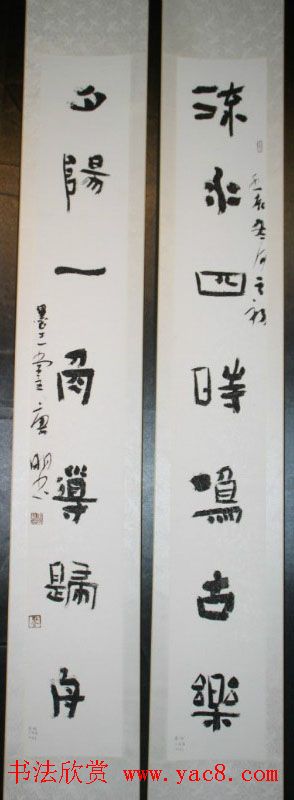 流水四時鳴古樂
夕陽一角導歸舟
书法欣赏 www.yac8.com